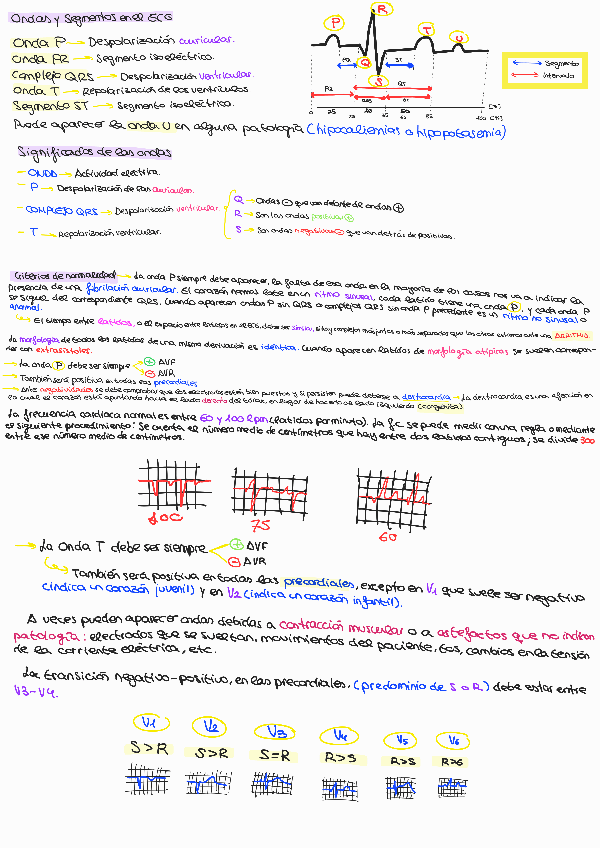 Ondas y Segmentos en el ECG
Onda P → Despolarización auricular.
Onda PR → Segmento isoeléctrico.
Complejo QRS → Despolarización ventricular.
Onda T → Repolarización de los ventrículos
Segmento ST → Segmento isoeléctrico.
Puede aparecer la onda U en alguna patología (hipocaliemias o hipopotasemia)
P
R
T
U
Q
S
PR
ST
QT
PR
QRS
ST
0
25
100
Segmento
Intervalo
Significados de las ondas
- ONDA → Actividad eléctrica.
- P → Despolarización de las aurículas.
- COMPLEJO QRS → Despolarización ventricular.
Q → Ondas ⊖ que van delante de ondas ⊕
R → Son las ondas positivas ⊕
S → Son ondas negativas ⊖ que van detrás de positivas.
- T → Repolarización ventricular.
Criterios de normalidad → La onda P siempre debe aparecer, la falta de esa onda en la mayoría de los casos nos va a indicar la
presencia de una fibrilación auricular. El corazón normal late en un ritmo sinusal, cada latido tiene una onda P, y cada onda P
se sigue del correspondiente QRS. Cuando aparecen ondas P sin QRS o complejos QRS sin onda P precedente es un ritmo no sinusal o
anormal.
El tiempo entre latidos, o el espacio entre latidos en el ECG, debe ser similar, si hay complejos más juntos o más separados que los otros estamos ante una ARRITMIA.
La morfología de todos los latidos de una misma derivación es idéntica. Cuando aparecen latidos de morfología atípica, se suelen correspon-
der con extrasístoles.
→ La onda P debe ser siempre
⊕ AVF
⊖ AVR
→ También será positiva en todas las precordiales
→ Ante negatividades se debe comprobar que los electrodos están bien puestos y si persisten puede deberse a dextrocardia → La dextrocardia es una afección en
la cual el corazón está apuntando hacia el lado derecho del tórax, en lugar de hacerlo al lado izquierdo (congénita)
La frecuencia cardiaca normal es entre 60 y 100 lpm (latidos por minuto). La fc se puede medir con una regla o mediante
el siguiente procedimiento: Se cuenta el número medio de centímetros que hay entre dos latidos contiguos; se divide 300
entre ese número medio de centímetros.
100
75
60
→ La Onda T debe ser siempre
⊕ AVF
⊖ AVR
También será positiva en todas las precordiales, excepto en V1 que suele ser negativa
(indica un corazón juvenil) y en V2 (indica un corazón infantil).
A veces pueden aparecer ondas debidas a contracción muscular o a astefactos que no indican
patología: electrodos que se sueltan, movimientos del paciente, tos, cambios en la tensión
de la corriente eléctrica, etc.
La transición negativo-positivo, en las precordiales, (predominio de S o R) debe estar entre
V3-V4.
V1
V2
V3
V4
V5
V6
S>R
S>R
S=R
R>S
R>S
R>S